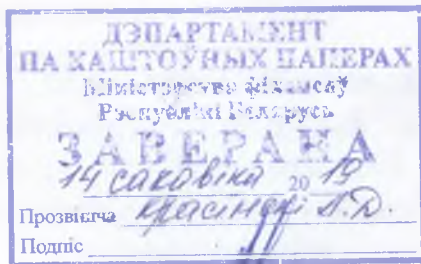 ДЭПАРТАМЕНТ
ПА КАШТОЎНЫХ ПАПЕРАХ
Міністэрства фінансаў
Рэспублікі Беларусь
ЗАВЕРАНА
14 сакавіка 2019
Прозвішча
Подпіс